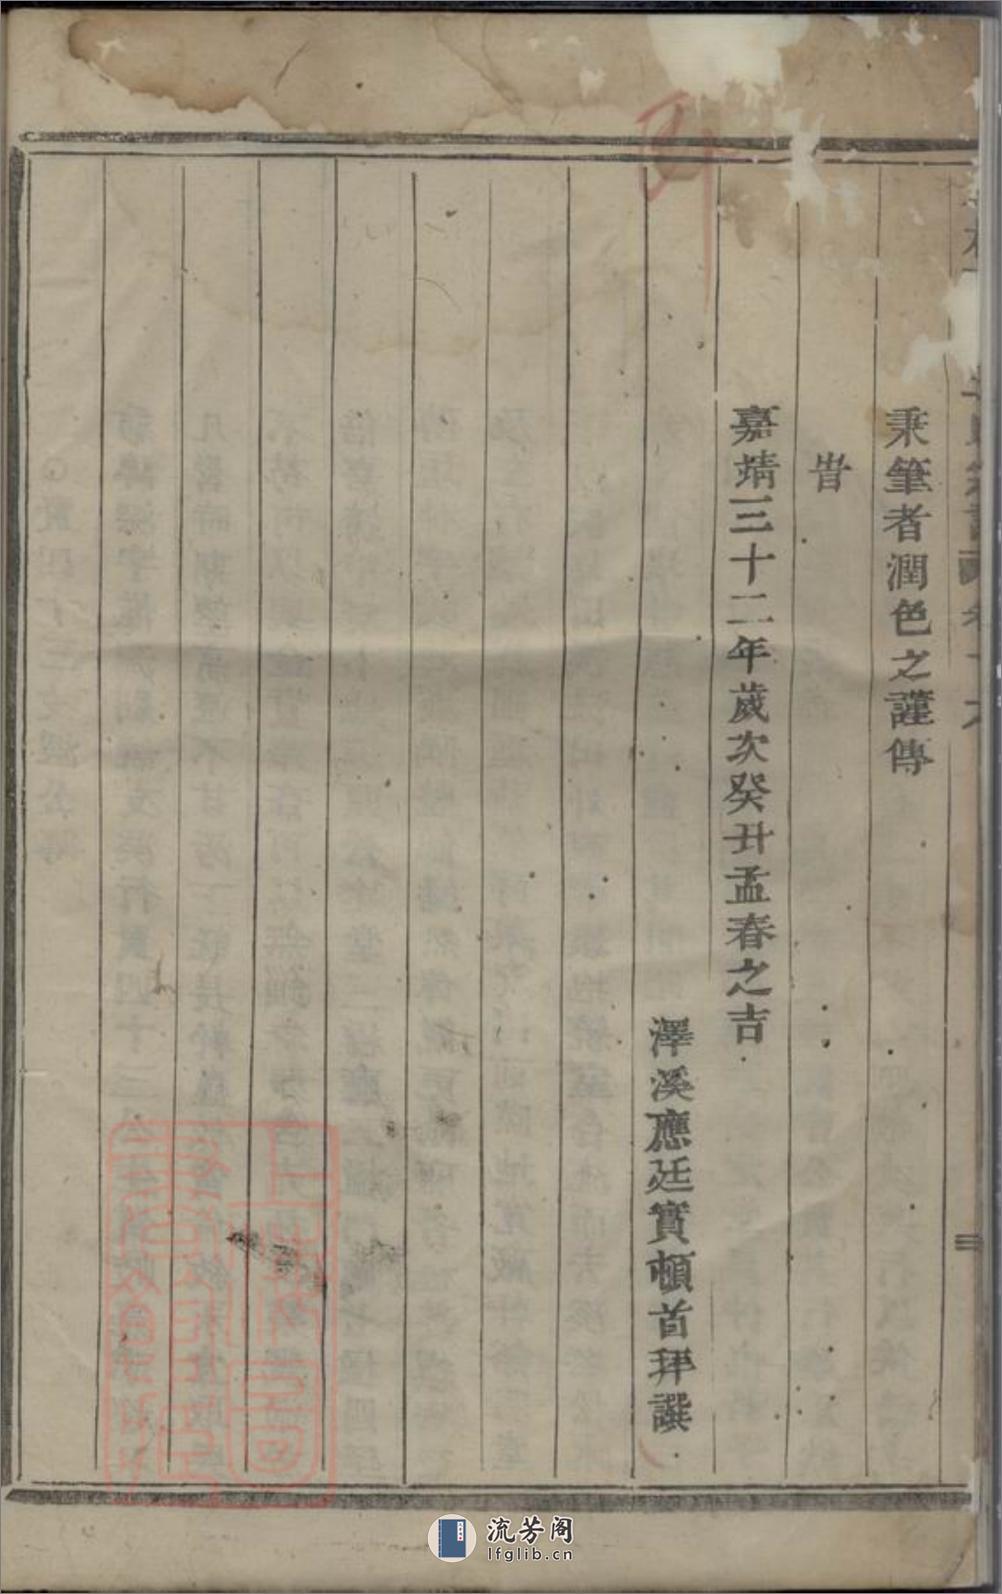 秉筆者潤色之謹傳
旹
嘉靖三十二年歲次癸丑孟春之吉
澤溪應廷實頓首拜譔
流芳阁
lfglib.cn